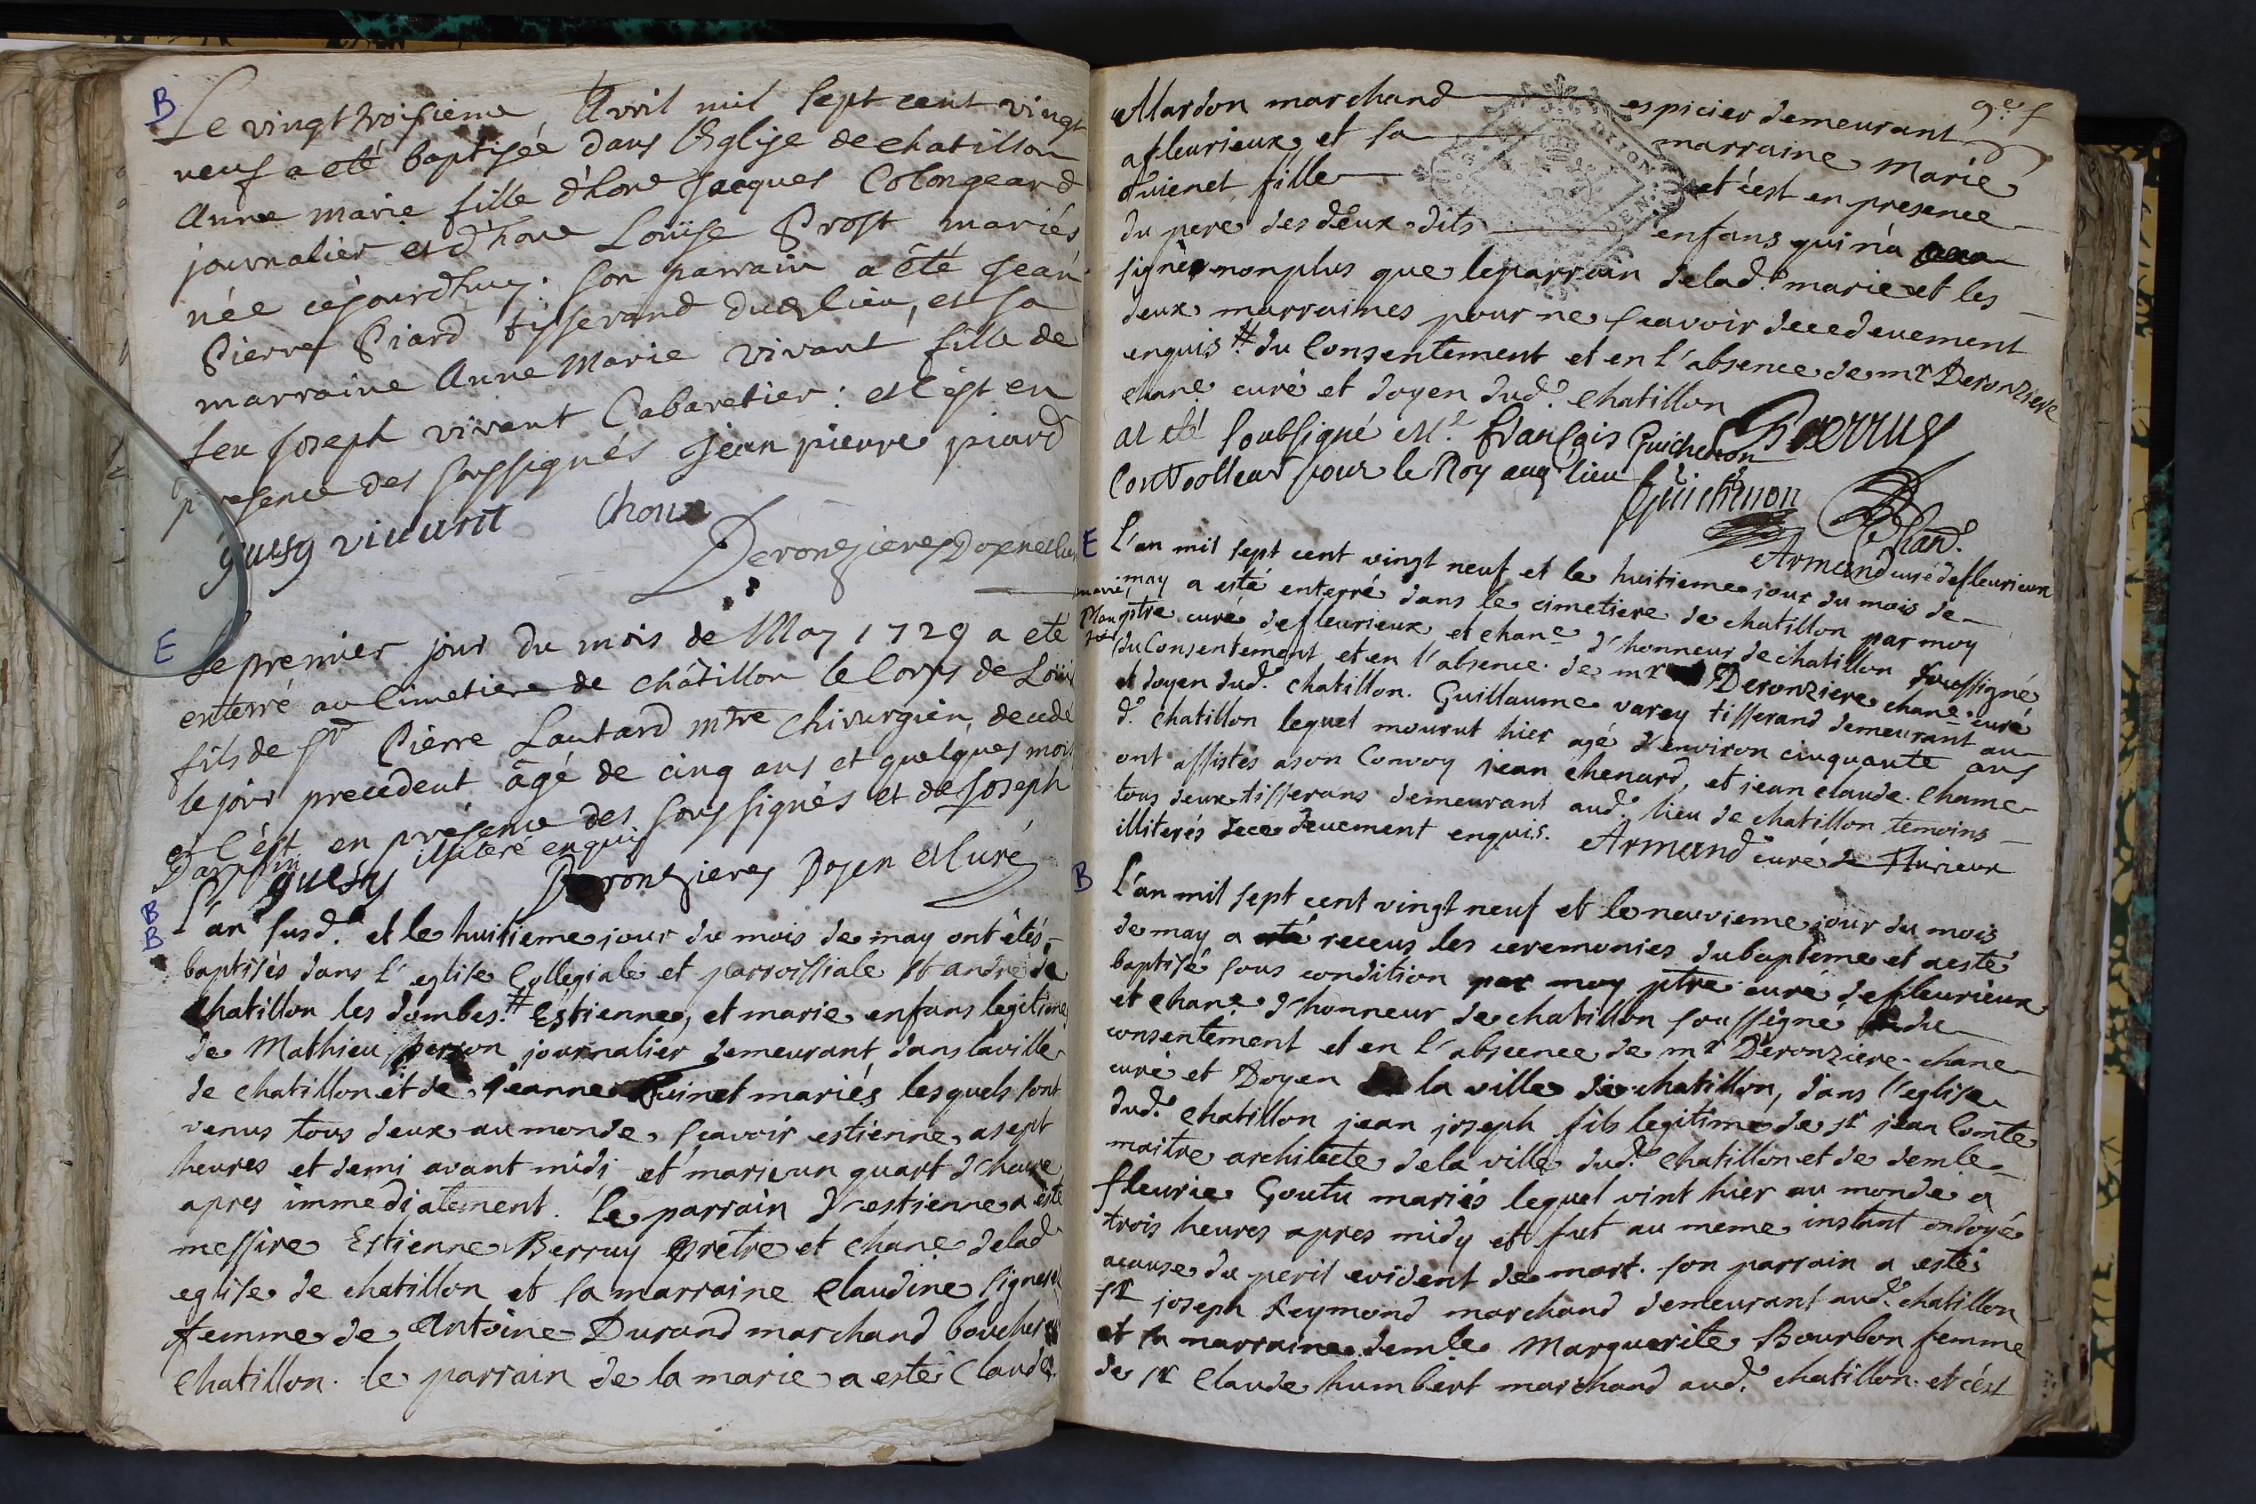 B
Le vingt troisieme Avril mil sept cent vingt
neuf a eté baptisée dans l'Eglise de chatillon
Anne marie fille d'hone Jacques Colongeard
journalier et d'hone Loüise Prost mariés
née cejourdhuy: son parrain a été Jean
Pierre Piard tisserand dud lieu, et sa
marraine Anne Marie vivant fille de
feu Joseph vivant Cabaretier: et c'est en
presence des soussignés jean pierre piard
guisg viuant Choux
Deronzieres Doyen et cur
E
Le premier jour du mois de May 1729 a eté
enterré au Cimetiere de châtillon le Corps de Loüis
fils de Sr Pierre Lautard mtre Chirurgien, decedé
le jour precedent âgé de cinq ans et quelques mois
et c'est en présence des soussignés et de Joseph
Darphin illiteré enquis
guisg Deronzieres Doyen et Curé
B
B
L'an susd.e et le huitieme jour du mois de may ont étés
baptisés dans l'eglise Collegiale et parroissiale st andré de
chatillon les dombes.# Estienne, et marie enfans legitimes
de Mathieu journalier demeurant dans la ville
de chatillon et de jeanne Guinet mariés lesquels sont
venus tous deux au monde, sçavoir estienne a sept
heures et demi avant midi et marie un quart d'heure
apres immediatement. Le parrain d'estienne a esté
messire Estienne Berruy prêtre et chane delad
eglise de chatillon et sa marraine Claudine signe
femme de Antoine Durand marchand boucher
chatillon. le parrain de la marie a esté Claude
9.e f
Mardon marchand espicier demeurant
a fleurieux, et sa marraine Marie
Guienet fille et c'est en presence
du pere des deux dits enfans qui n'a
signé nonplus que le parrain delad.e marie et les
deux marraines pour ne scavoir de ce deuement
enquis # du Consentement et en l'absence de mr Deronziere
chane curé et doyen dud.e chatillon
at eté soubsigné Mr françois Guichenon Berruy
Conttrolleur pour le Roy audt lieu
Guichenon Chan.e
Armand curé de fleurieux
E
L'an mil sept cent vingt neuf et le huitieme jour du mois de
may a esté enterré dans le cimetiere de chatillon par moy
ptre curé de fleurieux et chane d'honneur de chatillon soussigné
du Consentement et en l'absence de mr Deronziere chane curé
et doyen dud.e chatillon. Guillaume varey tisserand demeurant au
d.e chatillon lequel mourut hier agé d'environ cinquante ans
ont assistés a son Convoy jean chenard, et jean claude. Chame
tous deux tisserans demeurant aud.e lieu de chatillon temoins
illiterés de ce deuement enquis. Armand curé de flurieux
B
L'an mil sept cent vingt neuf et le neuvieme jour du mois
de may a receus les ceremonies du baptême et a esté
baptisé sous condition par moy ptre curé de fleurieux
et chane d'honneur de chatillon soussigné du
consentement et en l'abscence de mr Deronziere chane
curé et Doyen la ville de chatillon, dans l'eglise
dud.e chatillon jean joseph fils legitime de sr jean Comte
maitre architecte de la ville dud.e chatillon et de demle
fleurie Goutu mariés lequel vint hier au monde a
trois heures apres midy et fut au meme instant ondoyé
a cause du peril evident de mort. son parrain a esté
sr joseph Reymond marchand demeurant aud.e chatillon
et sa marraine demle Marguerite Bourbon femme
de sr Claude humbert marchand aud.e chatillon. et c'est